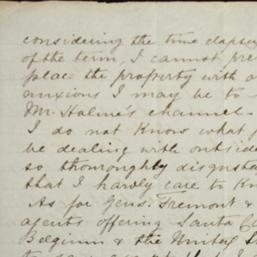 considering the time elapse
of the term, I cannot pre
place the property with a
anxious I may be to
Mr. Holme's channel.
I do not know what p
be dealing with outsid
so thoroughly disgusted
that I hardly care to kn
As for Genls. Fremont &
agents offering Santa C
Belgium & the United S